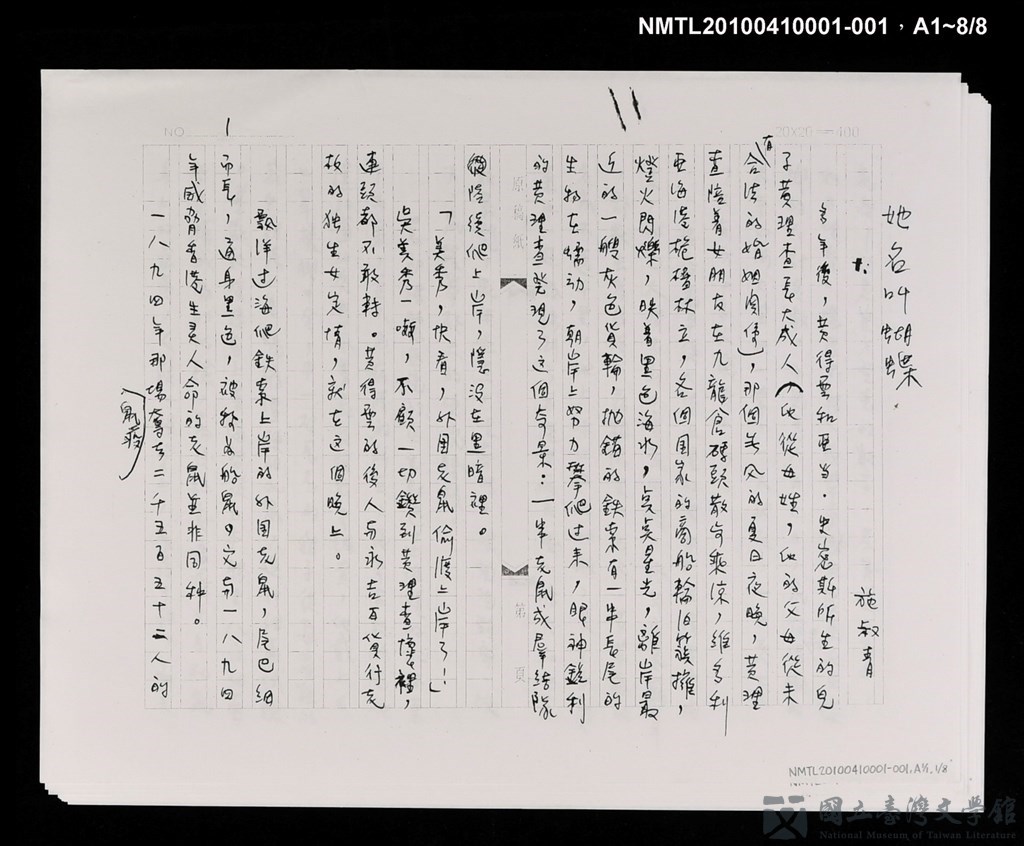 NMTL20100410001-001，A1~8/8
NO 1
20×20=400
她名叫蝴蝶
施叔青
十、
多年後，黃得雲和亞当·史密斯所生的兒
子黃理查長大成人（他從母姓，他的父母從未
有合法的婚姻関係），那個無风的夏日夜晚，黃理
查陪着女朋友在九龍倉碼頭散步乘凉，維多利
亞海港桅檣林立，各個国家的商船輪泊簇擁，
燈火閃爍，映着黑色海水，点点星光，離岸最
近的一艘灰色貨輪，抛錨的鉄索有一串長尾的
生物在蠕动，朝岸上努力攀爬过来，眼神銳利
的黃理查発現了這個奇景：一串老鼠成羣結隊
從陸續爬上岸，隱没在黑暗裡。
「美秀，快看，外国老鼠偷渡上岸了！」
吳美秀一嚇，不顧一切鑽到黃理查懷裡，
連頭都不敢轉。黃得雲的後人与永吉百貨行老
板的独生女定情，就在這個晚上。
飄洋过海爬鉄索上岸的外国老鼠，尾巴細
而長，通身黑色，被称为船鼠，它与一八九四
年威脅香港生灵人命的老鼠並非同种。
一八九四年那場奪去二千五百五十二人的
鼠疫
原稿紙
第 頁
NMTL20100410001-001, A1, 1/8
國立臺灣文學館
National Museum of Taiwan Literature